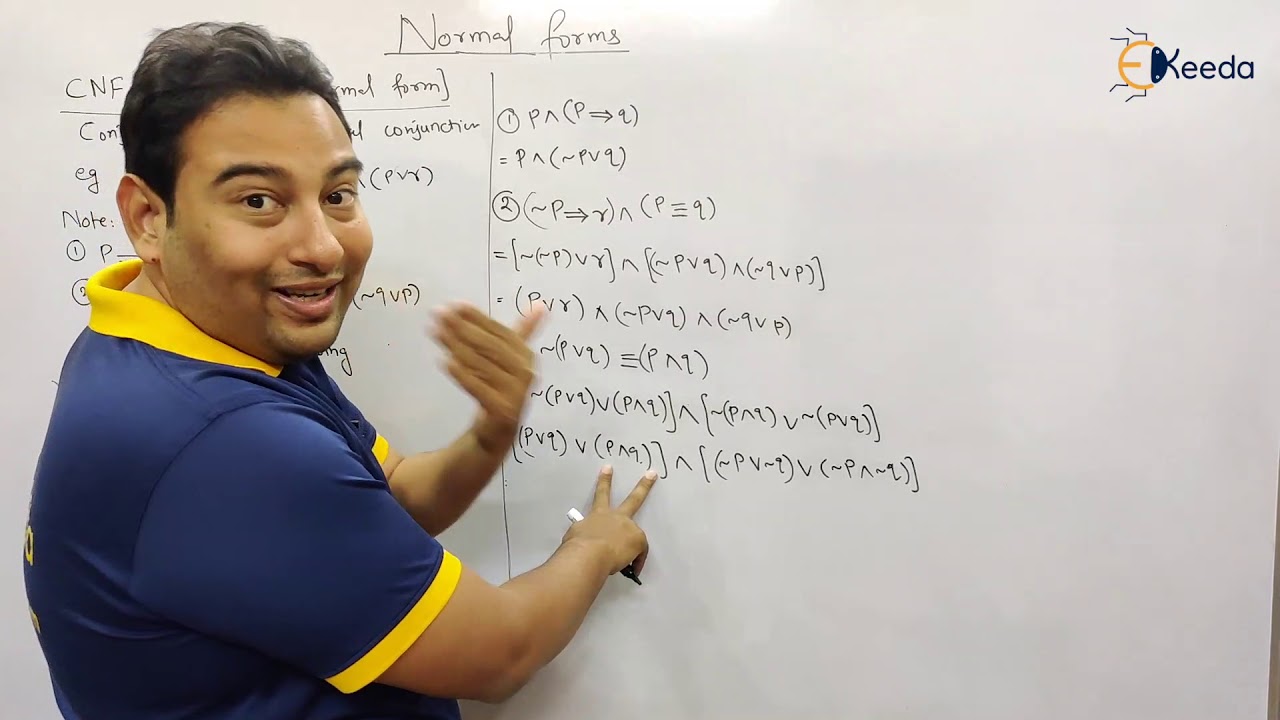 Normal forms
EKeeda
CNF rmal form]
Con l conjunction
eg ∧(P∨r)
Note:
① P
(~q∨p)
ing
① P∧(P⇒q)
= P∧(~P∨q)
② (~P⇒r)∧(P≡q)
=[~(~P)∨r]∧[(~P∨q)∧(~q∨P)]
= (P∨r)∧(~P∨q)∧(~q∨P)
~(P∨q)≡(P∧q)
~(P∨q)∨(P∧q)]∧[~(P∧q)∨~(P∨q)]
[(P∨q)∨(P∧q)]∧[(~P∨~q)∨(~P∧~q)]